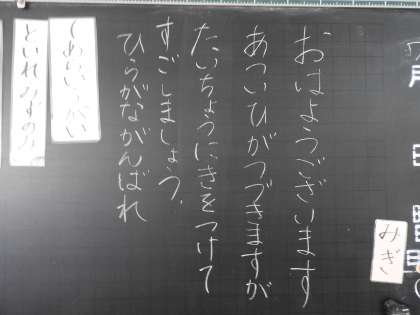 みぎ
おはようございます
あついひがつづきますが
たいちょうにきをつけて
すごしましょう。
ひらがながんばれ
といれ・みずのみ